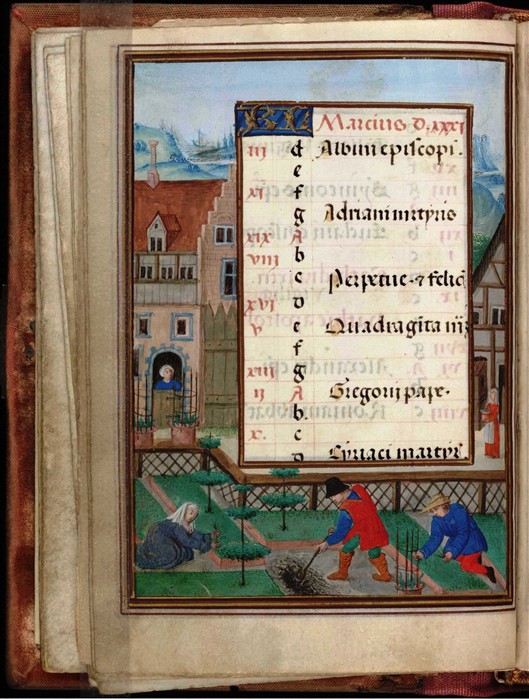 KL Marcius d. xxxi
iij d Albini episcopi.
e
xi f
g Adriani mrtyris
xix A
viii b
c Perpetue ⁊ felic
xvi d
v e Quadragīta
f
xiii g
ij A Gregorij pape.
b.
x. c
d Cyriaci martyr.